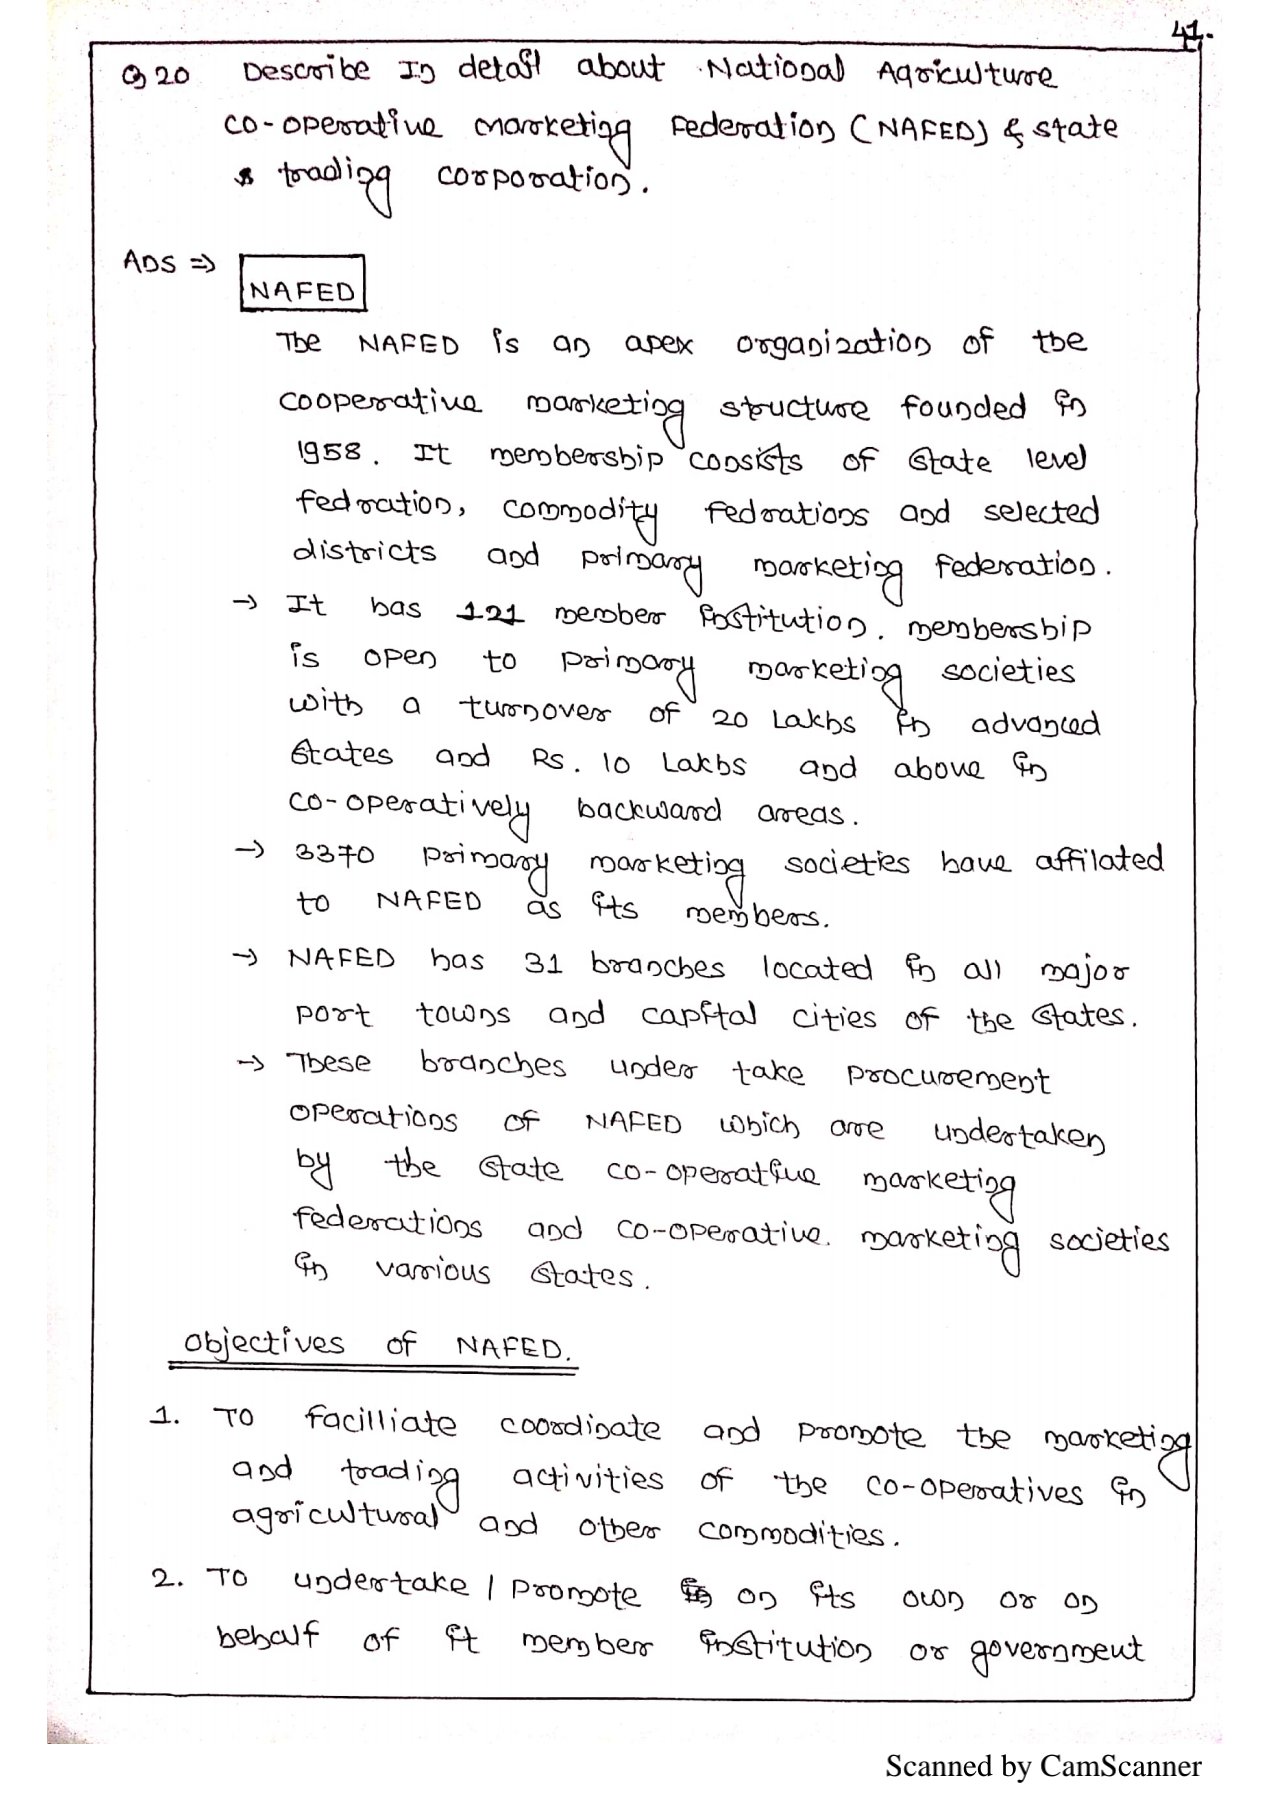 41.
Q 20 Describe In detail about National Agriculture
co-operative marketing Federation (NAFED) & state
trading corporation.
Ans ⇒ NAFED
The NAFED is an apex organization of the
cooperative marketing structure founded in
1958. It membership consists of state level
fedration, commodity fedrations and selected
districts and primary marketing federation.
→ It has 121 member institution. membership
is open to primary marketing societies
with a turnover of 20 Lakhs in advanced
states and Rs. 10 Lakhs and above in
co-operatively backward areas.
→ 3370 primary marketing societies have affilated
to NAFED as its members.
→ NAFED has 31 branches located in all major
port towns and capital cities of the states.
→ These branches under take procurement
operations of NAFED which are undertaken
by the state co-operative marketing
federations and co-operative. marketing societies
in various states.
Objectives of NAFED.
1. To facilliate coordinate and promote the marketing
and trading activities of the co-operatives in
agricultural and other commodities.
2. To undertake / promote on its own or on
behalf of it member institution or government
Scanned by CamScanner